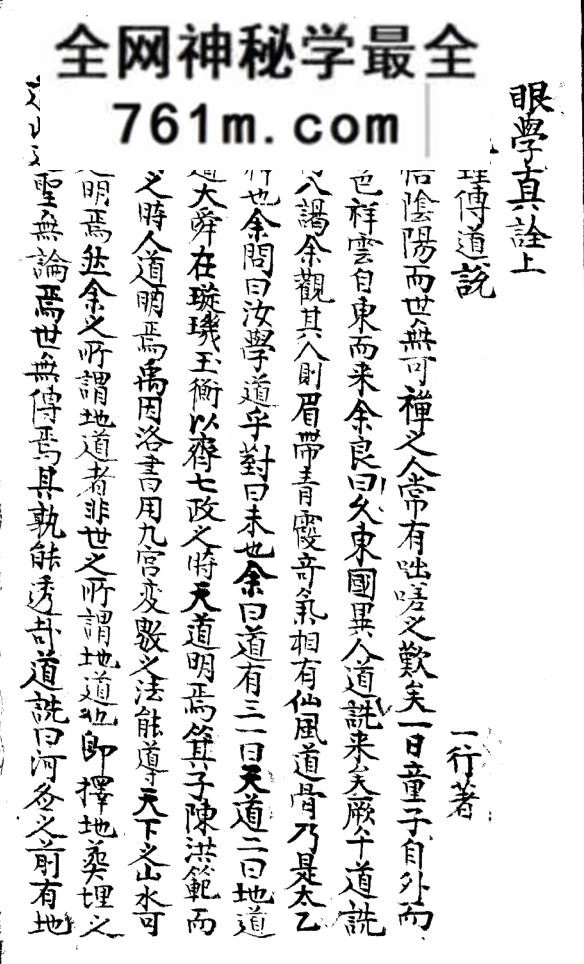 全网神秘学最全
761m.com
眼學真詮上
理傳道說
一行著
陰陽而世無可禪之人常有咄嗟之歎矣一日童子自外而
色祥雲自東而来余良曰久東國異人道詵来矣厥午道詵
八謁余觀其人則眉帶青霞奇氣相有仙風道骨乃是太乙
也余問曰汝學道乎對曰未也余曰道有三一曰天道二曰地道
大舜在璇璣玉衡以齊七政之時天道明焉箕子陳洪範而
之時人道明焉禹因洛書用九宮変數之法能導天下之山水可
明焉然余之所謂地道者非世之所謂地道也即擇地葬埋之
聖無論焉世無傳焉其孰能透哉道詵曰河圖之前有地